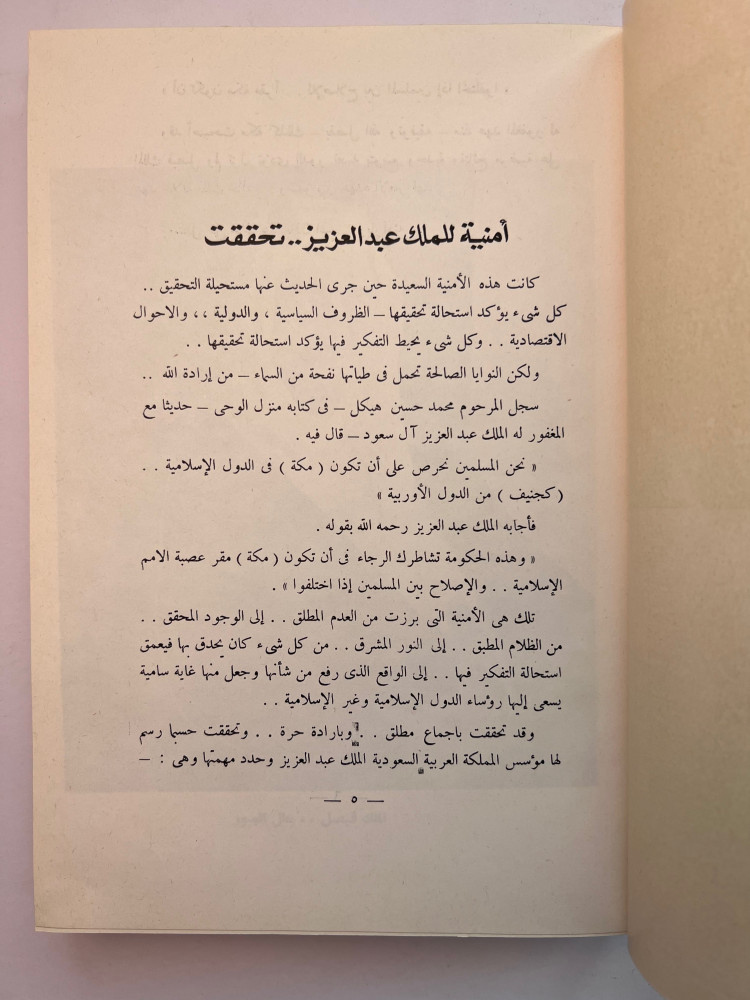 أمنية للملك عبد العزيز .. تحققت
كانت هذه الأمنية السعيدة حين جرى الحديث عنها مستحيلة التحقيق ..
كل شىء يؤكد استحالة تحقيقها — الظروف السياسية ، والدولية ،، والاحوال
الاقتصادية . . وكل شىء يحيط التفكير فيها يؤكد استحالة تحقيقها . .
ولكن النوايا الصالحة تحمل فى طياتها نفحة من السماء — من إرادة الله ..
سجل المرحوم محمد حسين هيكل — فى كتابه منزل الوحى — حديثا مع
المغفور له الملك عبد العزيز آل سعود — قال فيه .
« نحن المسلمين نحرص على أن تكون ( مكة ) فى الدول الإسلامية . .
( كجنيف ) من الدول الأوربية »
فأجابه الملك عبد العزيز رحمه الله بقوله .
« وهذه الحكومة تشاطرك الرجاء فى أن تكون ( مكة ) مقر عصبة الامم
الإسلامية . . والإصلاح بين المسلمين إذا اختلفوا » .
تلك هى الأمنية التى برزت من العدم المطلق . . إلى الوجود المحقق . .
من الظلام المطبق . . إلى النور المشرق . . من كل شىء كان يحدق بها فيعمق
استحالة التفكير فيها . . إلى الواقع الذى رفع من شأنها وجعل منها غاية سامية
يسعى إليها رؤساء الدول الإسلامية وغير الإسلامية . .
وقد تحققت باجماع مطلق . . وبارادة حرة . . وتحققت حسبما رسم
لها مؤسس المملكة العربية السعودية الملك عبد العزيز وحدد مهمتها وهى : —
— ٥ —